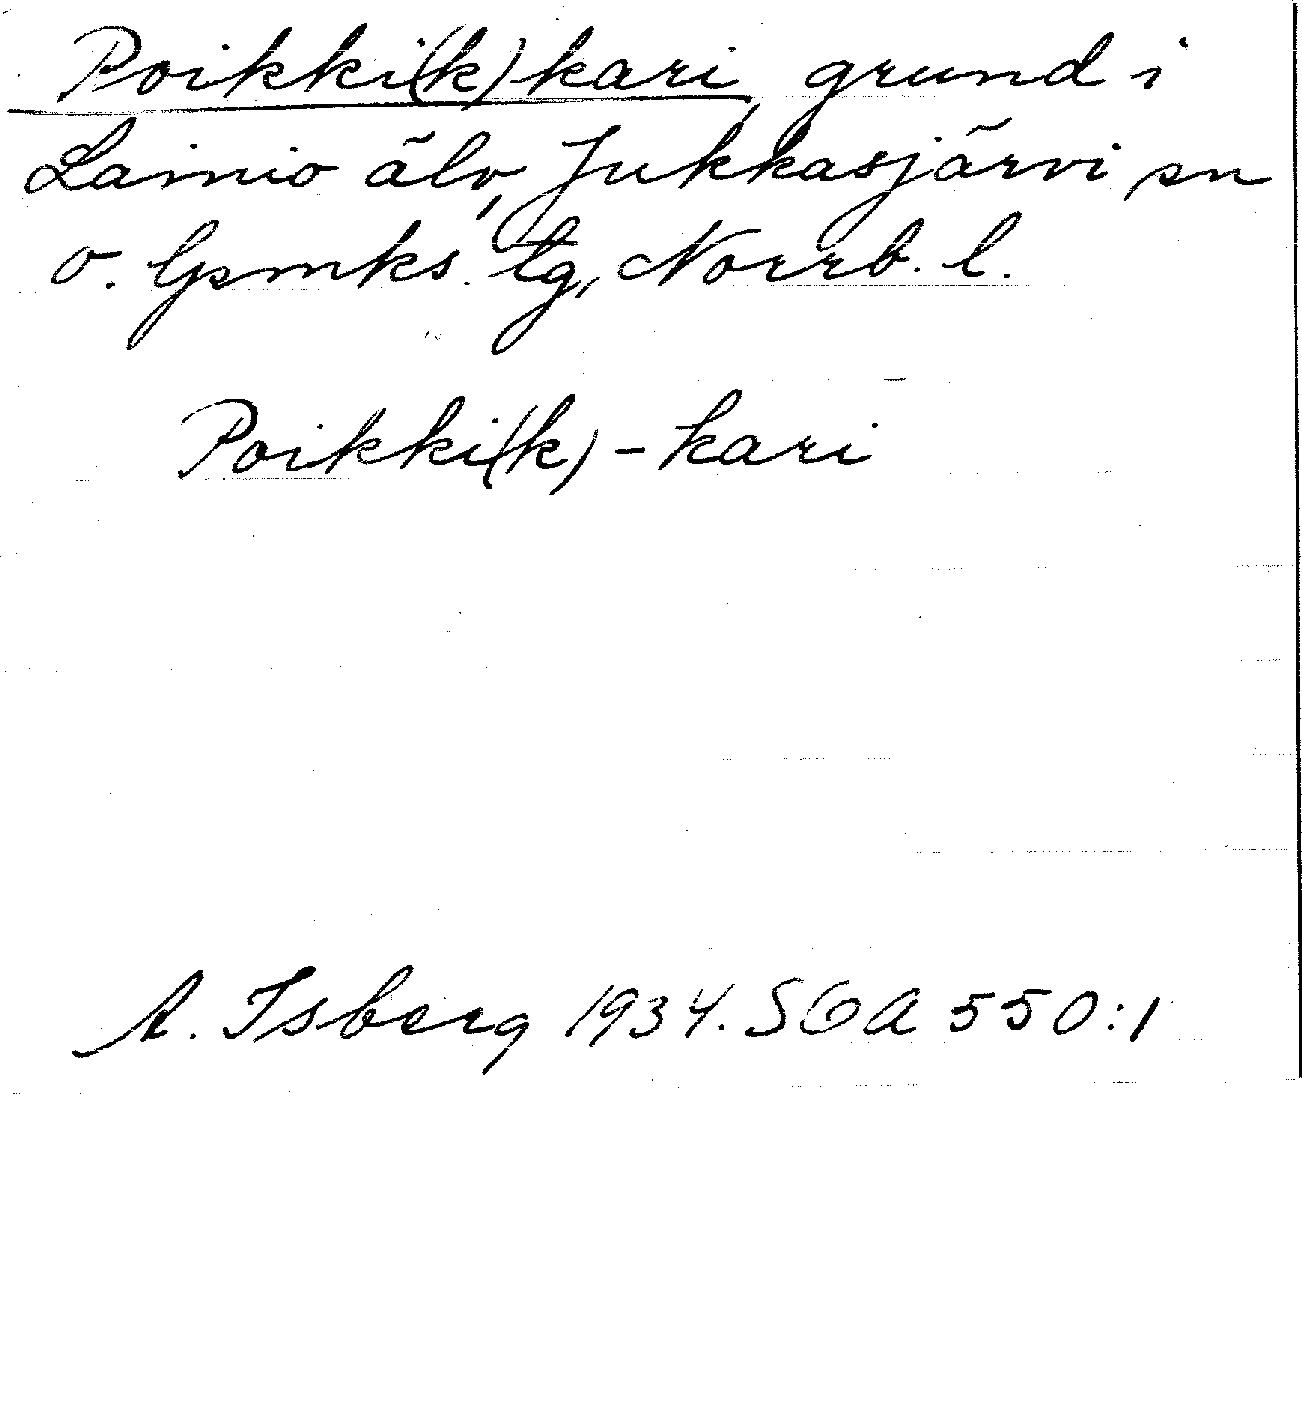 Poikki(k)kari, grund i
Lainio älv, Jukkasjärvi sn
o. lpsmks. tg, Norrb. l.
Poikki(k) - kari
A. Isberg 1934. SOA 550:1